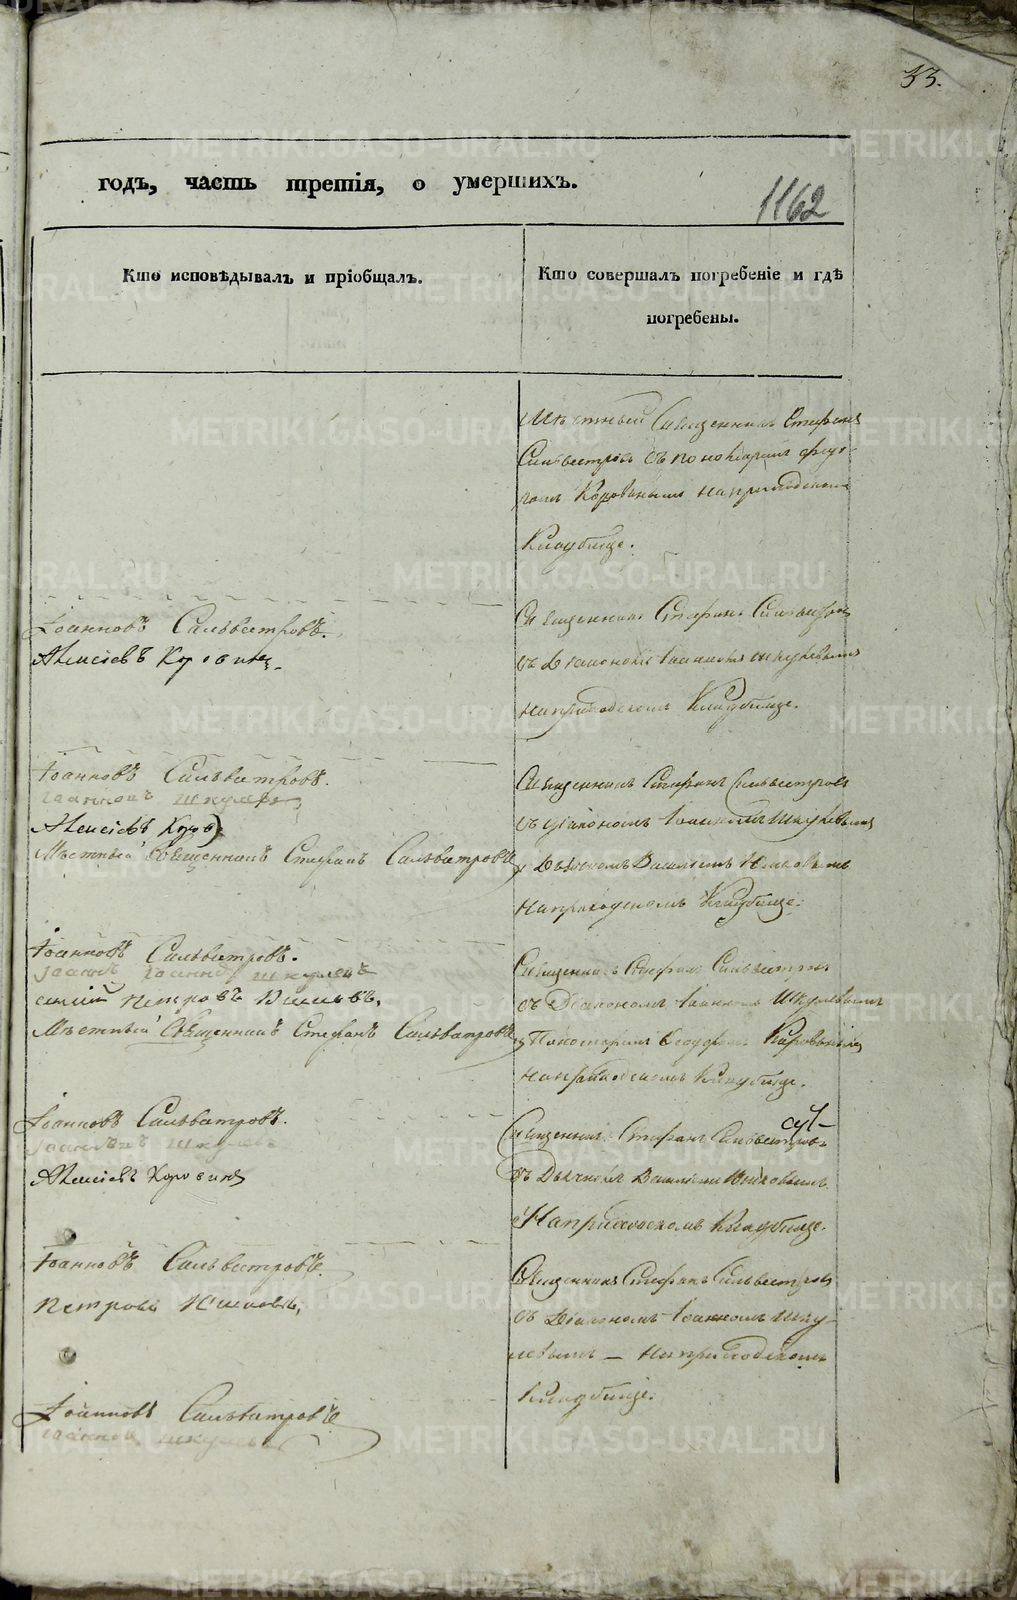 33.
годъ, часть третія, о умершихъ.
1162
Кто исповѣдывалъ и пріобщалъ.
Кто совершалъ погребеніе и гдѣ
погребены.
Мѣстный Священникъ Стефанъ
Сильвестровъ съ пономаремъ
Коровинымъ на приходскомъ
Кладбище.
Іоанновъ Сильвестровъ.
Алексіевъ Коровинъ.
Священникъ Стефанъ Сильвестровъ
съ Діакономъ Іоанномъ Шкулевымъ
на приходскомъ Кладбище.
Іоанновъ Сильвестровъ.
Іоаннов Шкулевъ
Алексіевъ Коров
Мѣстный Священникъ Стефанъ Сильвестровъ
Священникъ Стефанъ Сильвестровъ
съ діакономъ Іоанномъ Шкулевымъ
Дьячкомъ Василіемъ
на приходскомъ Кладбище.
Іоанновъ Сильвестровъ.
Іоаннов Шкулевъ
Петровъ
Мѣстный Священникъ Стефанъ Сильвестровъ
Священникъ Стефанъ Сильвестровъ
съ Діакономъ Іоанномъ Шкулевымъ
Пономаремъ Коровинымъ
на приходскомъ Кладбище.
Іоанновъ Сильвестровъ.
Шкулевъ
Алексіевъ Коровинъ
Священникъ Стефанъ Сильвестровъ
съ Дьячкомъ Василіемъ
на приходскомъ Кладбище.
Іоанновъ Сильвестровъ.
Петровъ
Священникъ Стефанъ Сильвестровъ
съ Діакономъ Іоанномъ Шку-
левымъ — на приходскомъ
Кладбище.
Іоанновъ Сильвестровъ
Іоаннов Шкулевъ
METRIKI.GASO-URAL.RU